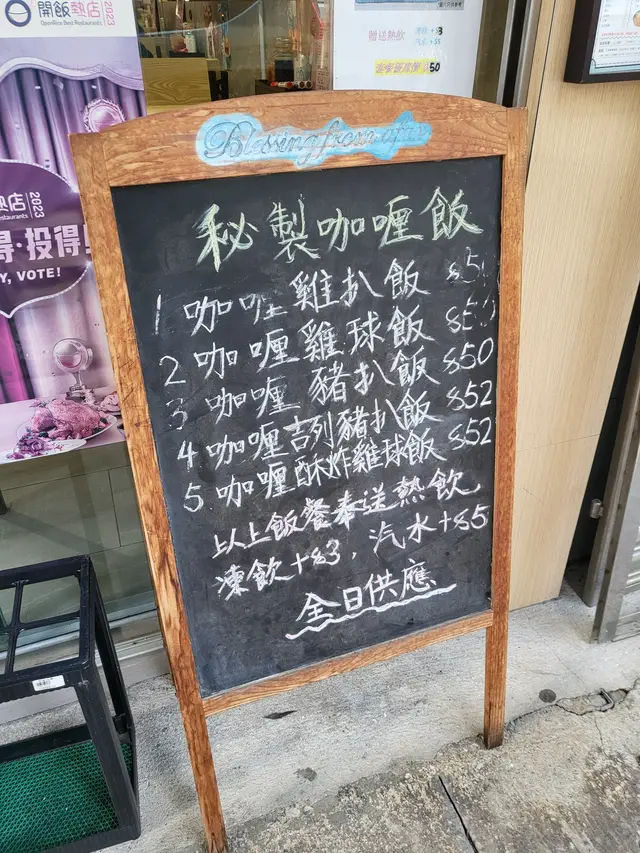 開飯熱店 2023
OpenRice Best Restaurants
贈送熱飲
$50
熱店 2023
Restaurants
得·投得
Y, VOTE!
Blessing from
秘製咖喱飯
1 咖喱雞扒飯 $50
2 咖喱雞球飯 $50
3 咖喱豬扒飯 $50
4 咖喱吉列豬扒飯 $52
5 咖喱酥炸雞球飯 $52
以上飯餐奉送熱飲
凍飲+$3，汽水+$5
全日供應